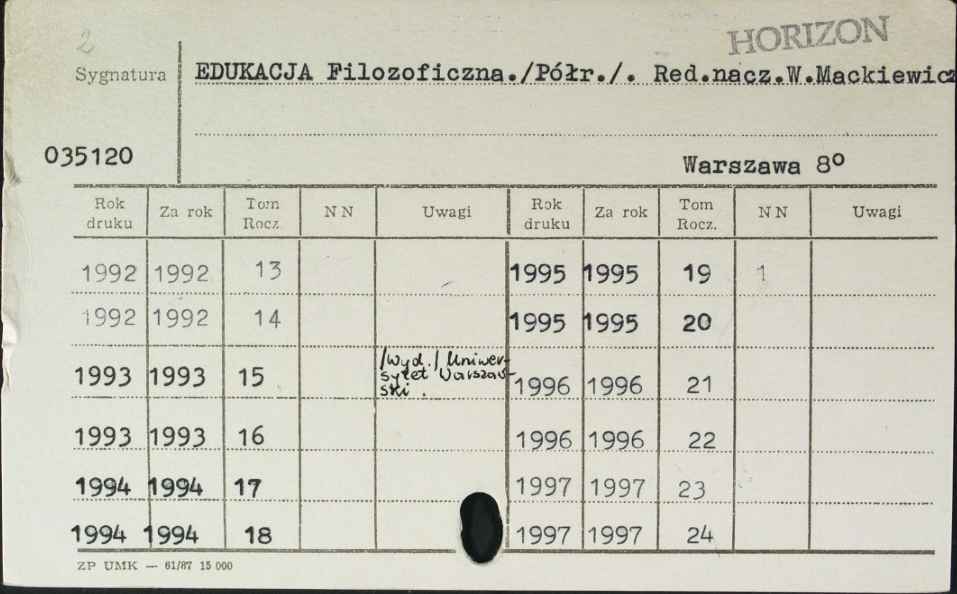 2
HORIZON
Sygnatura EDUKACJA Filozoficzna./Półr./. Red.nacz.W.Mackiewicz
035120 Warszawa 8º
Rok druku Za rok Tom Rocz. NN Uwagi Rok druku Za rok Tom Rocz. NN Uwagi
1992 1992 13 1995 1995 19 1
1992 1992 14 1995 1995 20
1993 1993 15 /Wyd./ Uniwer-sytet Warszaw-ski. 1996 1996 21
1993 1993 16 1996 1996 22
1994 1994 17 1997 1997 23
1994 1994 18 1997 1997 24
ZP UMK — 61/87 15 000